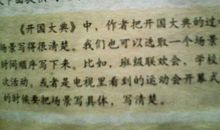 《开国大典》中，作者把开国大典的过
场景写得很清楚。我们也可以选取一个场景
时间顺序写下来。比如，班级联欢会、学校
次活动，或者是电视里看到的运动会开幕式
的时候要把场景写具体，写清楚。